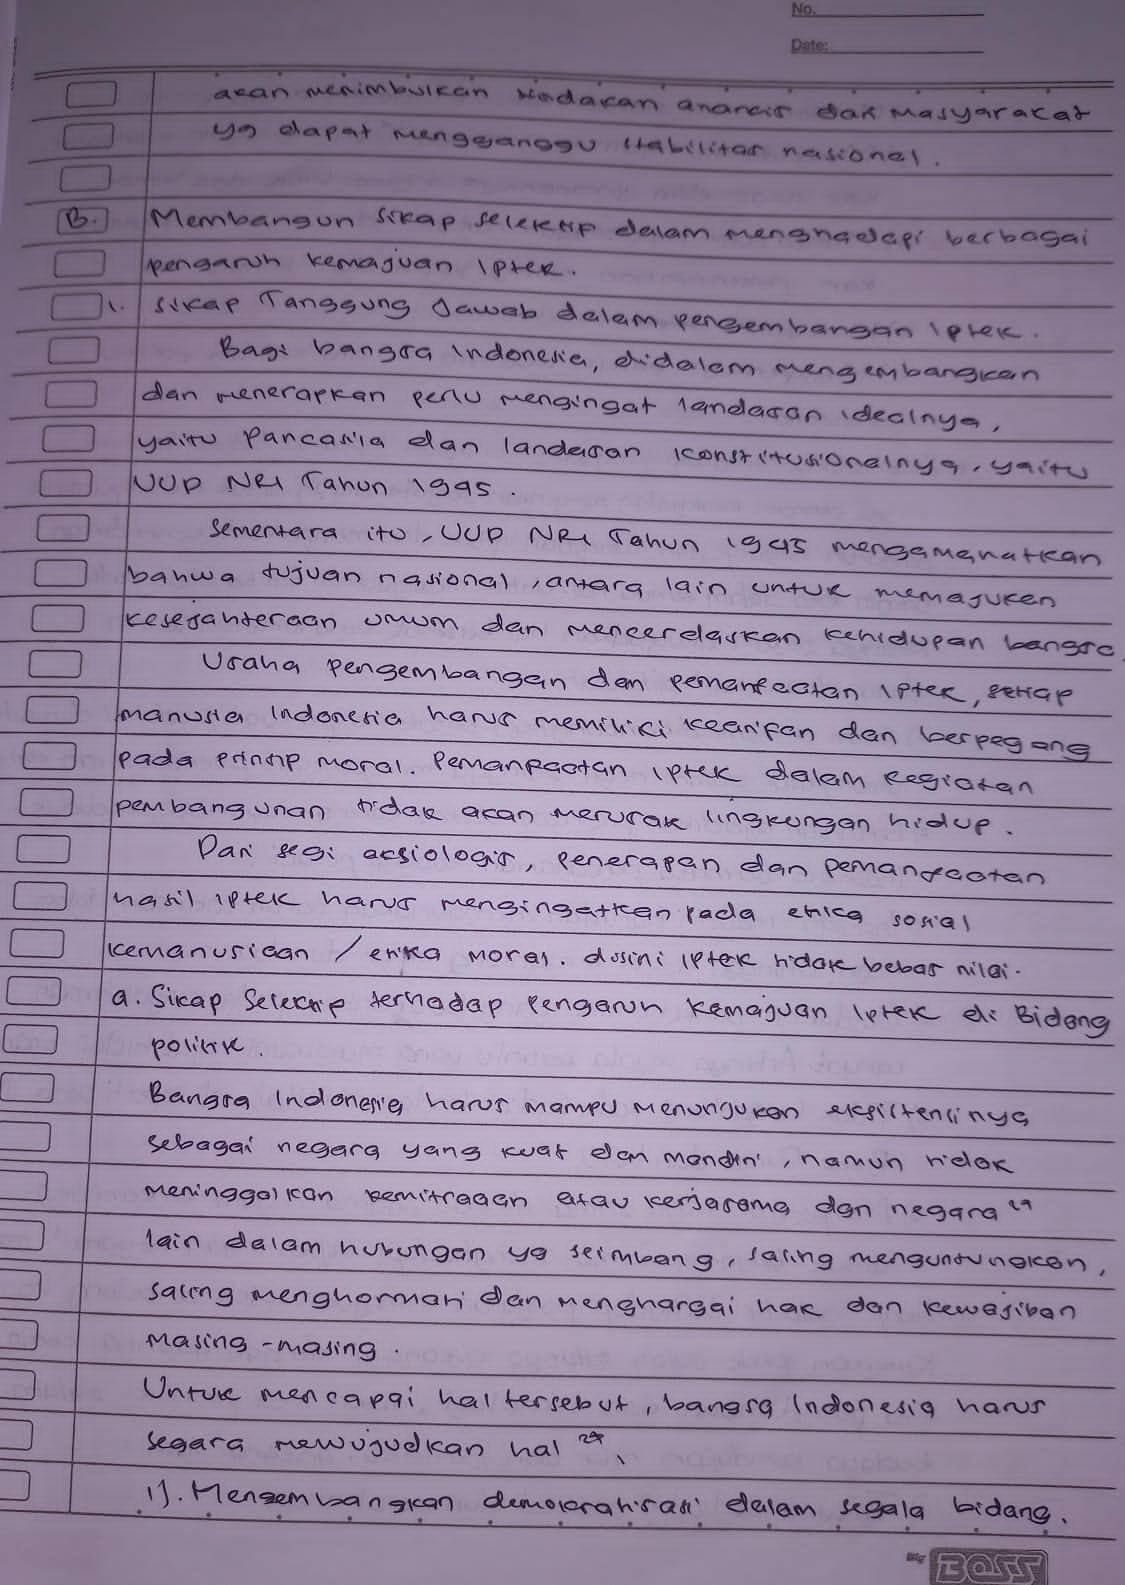 No.
Date:
akan menimbulkan tindakan anarkis dari masyarakat
yg dapat mengganggu stabilitas nasional.
B. Membangun sikap selektif dalam menghadapi berbagai
pengaruh kemajuan Iptek.
1. Sikap Tanggung Jawab dalam pengembangan Iptek.
Bagi bangsa Indonesia, didalam mengembangkan
dan menerapkan perlu mengingat landasan idealnya,
yaitu Pancasila dan landasan konstitusionalnya, yaitu
UUD NRI Tahun 1945.
Sementara itu, UUD NRI Tahun 1945 mengamanatkan
bahwa tujuan nasional, antara lain untuk memajukan
kesejahteraan umum dan mencerdaskan kehidupan bangsa.
Usaha pengembangan dan pemanfaatan Iptek, setiap
manusia Indonesia harus memiliki kearifan dan berpegang
pada prinsip moral. Pemanfaatan Iptek dalam kegiatan
pembangunan tidak akan merusak lingkungan hidup.
Dari segi aksiologis, penerapan dan pemanfaatan
hasil iptek harus mengingatkan pada etika sosial
kemanusiaan / etika moral. disini Iptek tidak bebas nilai.
a. Sikap Selektif terhadap Pengaruh Kemajuan Iptek di Bidang
politik.
Bangsa Indonesia harus mampu menunjukan eksistensinya
sebagai negara yang kuat dan mandiri, namun tidak
meninggalkan kemitraaan atau kerjasama dgn negara"
lain dalam hubungan yg seimbang, saling menguntungkan,
saling menghormati dan menghargai hak dan kewajiban
masing-masing.
Untuk mencapai hal tersebut, bangsa Indonesia harus
segara mewujudkan hal
1). Mengembangkan demokratisasi dalam segala bidang.
Big BOSS